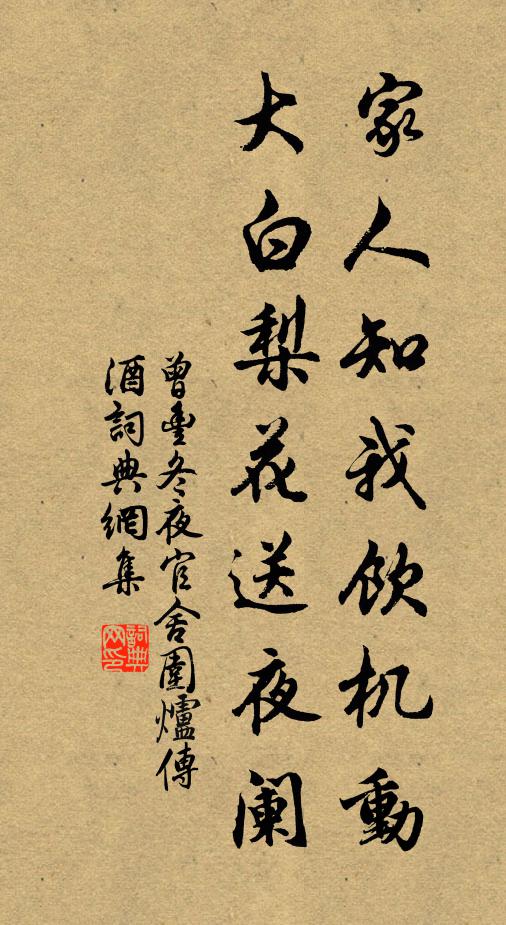 家人知我飲机動
大白梨花送夜阑
曾豐冬夜官舍圍爐傳
酒詞典網集
詞典网印